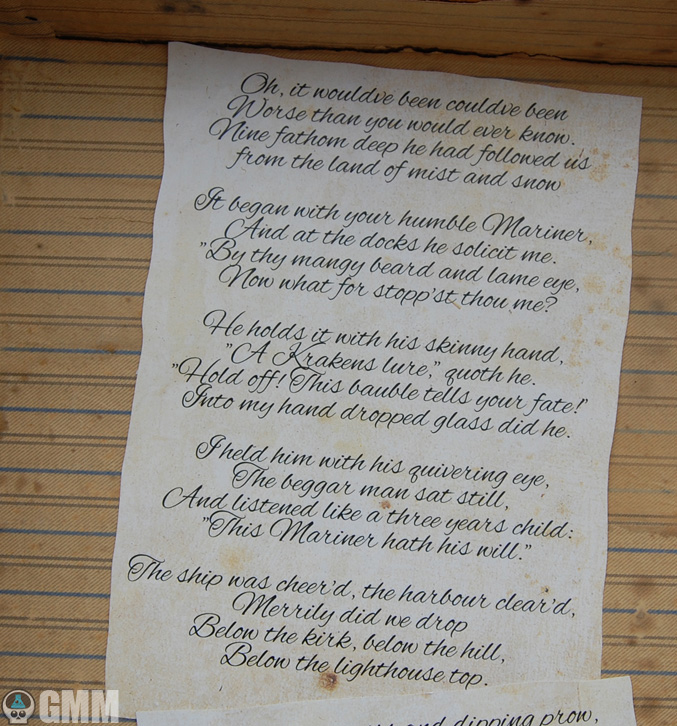 Oh, it wouldve been couldve been
Worse than you would ever know.
Nine fathom deep he had followed us
from the land of mist and snow
It began with your humble Mariner,
And at the docks he solicit me.
"By thy mangy beard and lame eye,
Now what for stopp'st thou me?
He holds it with his skinny hand,
"A Krakens lure," quoth he.
"Hold off! This bauble tells your fate!"
Into my hand dropped glass did he.
I held him with his quivering eye,
The beggar man sat still,
And listened like a three years child:
"This Mariner hath his will."
The ship was cheer'd, the harbour clear'd,
Merrily did we drop
Below the kirk, below the hill,
Below the lighthouse top.
and dipping prow,
GMM